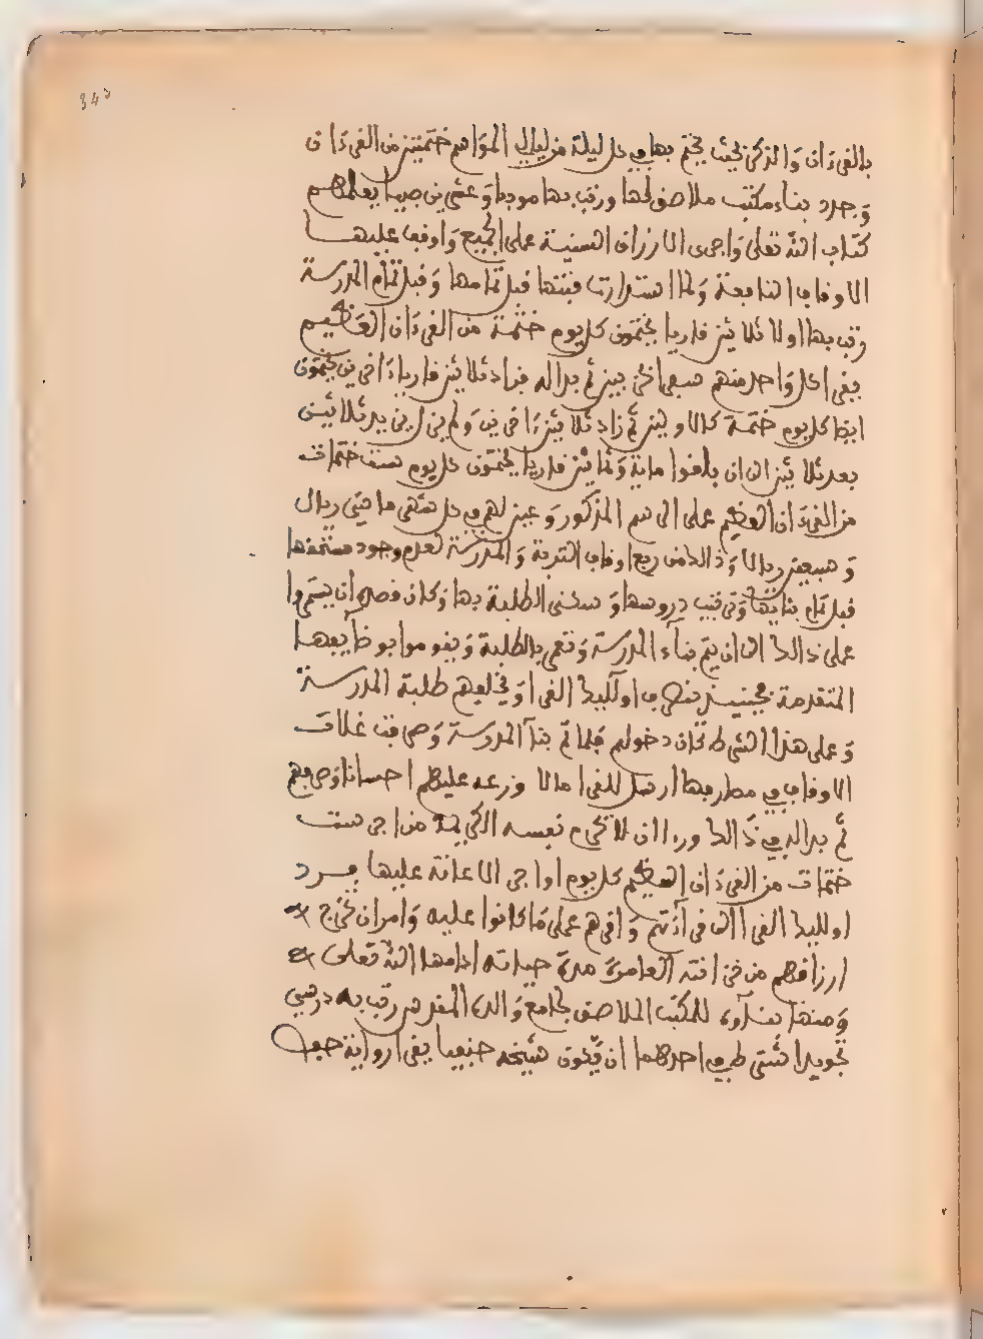 340
بالقرءان والذكر بحيث يختم بها في كل ليلة من ليالي المواسم ختمتين من القرءان
وجدد بناء مكتب ملاصق لها ورتب بها مودبا وعشرين صبيا يعلمهم
كتاب الله تعلى واجرى الارزاق السنية على الجميع واوقف عليها
الاوقاف النافعة ولما استدارت قبتها قبل تمامها وقبل تمام المدرسة
رتب بها اولا ثلاثين قاريا يختمون كل يوم ختمة من القرءان العظيم
يقرا كل واحد منهم سبعى حزبين ثم بدا له فزاد ثلاثين قارياء اخرين يختمون
ايضا كل يوم ختمة كالاولين ثم زاد ثلاثين ءاخرين ولم يزل يزيد ثلاثين
بعد ثلاثين الى ان بلغوا ماية وثمانين قاريا يختمون كل يوم ست ختمات
من القرءان العظيم على الرسم المذكور وعين لهم في كل شهر مايتى ريال
وسبعين ريالا وذالك من ريع اوقاف التربة والمدرسة لعدم وجود مستحقها
قبل تمام بنايها وترتيب دروسها وسكنى الطلبة بها وكان قصده ان يستمروا
على ذالك الى ان يتم بناء المدرسة وتعمر بالطلبة ويقوموا بوظايفها
المتقدمة فحينيذ ينصرف اوليك القرا ويخلفهم طلبة المدرسة
وعلى هذا الشرط كان دخولهم فلما تم بنا المدرسة وصرفت غلات
الاوقاف في مصارفها ارسل للقرا مالا وزعه عليهم احسانا وصرفهم
ثم بدا له في ذالك وراا ان لا يحرم نفسه الكريمة من اجر ست
ختمات من القرءان العظيم كل يوم او اجر الاعانة عليها فرد
اولليك القرا الى قراءتهم واقرهم على ما كانوا عليه وامر ان تخرج
ارزاقهم من خزانته العامرة مدة حياته ادامها الله تعلى
ومنها بناوه للمكتب الملاصق لجامع والده المقدس رتب به درسي
تجويد اشترط في احدهما ان يكون شيخه حنفيا يقرا رواية حفص